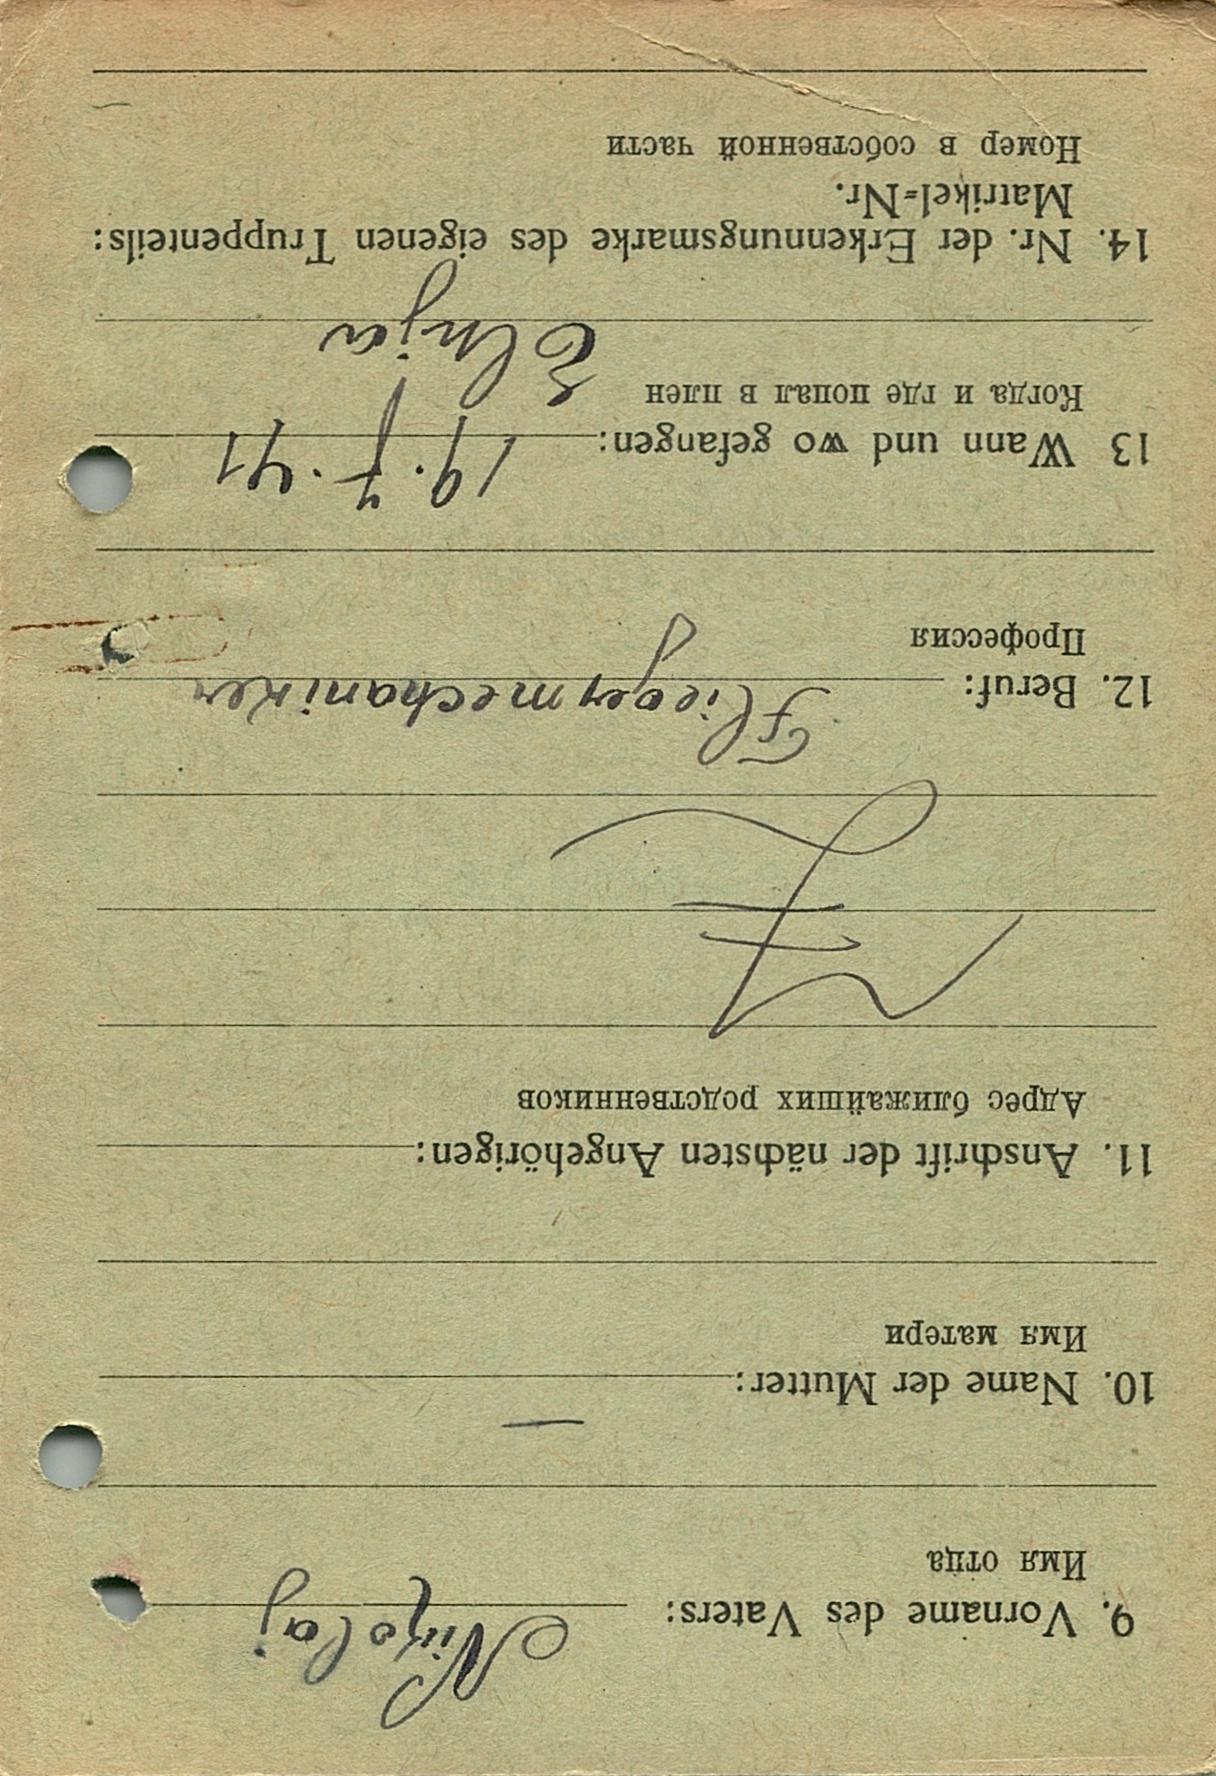 9. Vorname des Vaters: Nikolaj
Имя отца
10. Name der Mutter: —
Имя матери
11. Anschrift der nächsten Angehörigen:
Адрес ближайших родственников
12. Beruf: Fliegermechaniker
Профессия
13 Wann und wo gefangen: 19.7.41
Когда и где попал в плен Elnja
14. Nr. der Erkennungsmarke des eigenen Truppenteils:
Matrikel=Nr.
Номер в собственной части